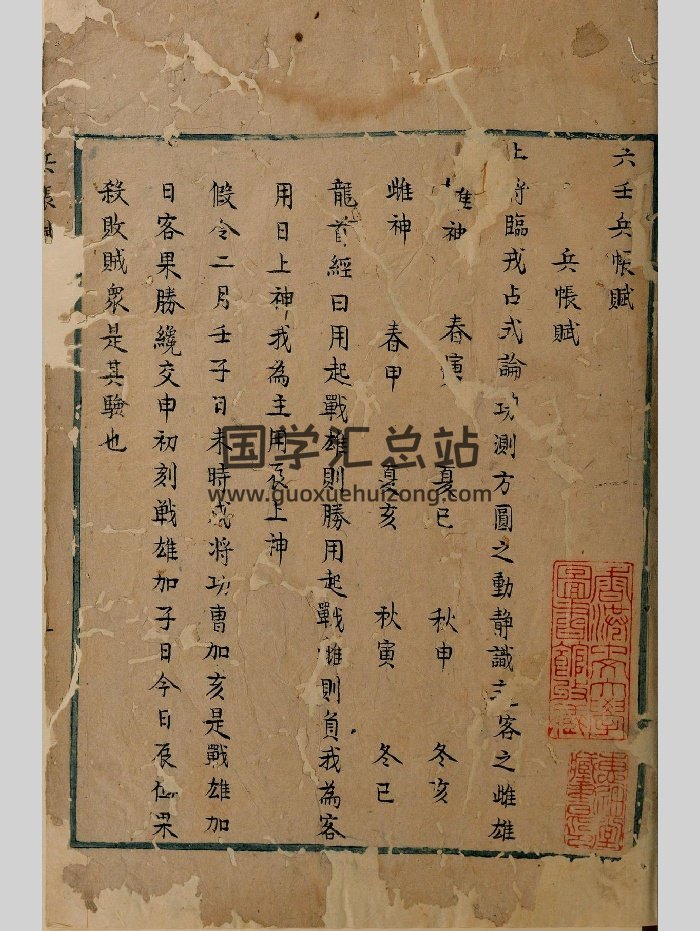 六壬兵帳賦
兵帳賦
上將臨戎占式論功測方圓之動静識主客之雌雄
雄神 春寅 夏巳 秋申 冬亥
雌神 春甲 夏亥 秋寅 冬巳
龍首經曰用起戰雄則勝用起戰雌則負我為客
用日上神我為主用辰上神
假令二月壬子日未時戍将功曹加亥是戰雄加
日客果勝纔交申初刻戦雄加子日今日辰位果
殺敗賊衆是其驗也
兵帳賦
香港中文大學圖書館所藏
國学汇总站
www.guoxuehuizong.com